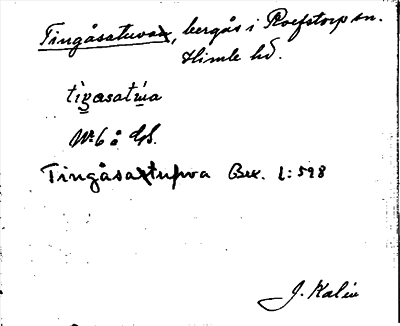 Tingåsatuvan, bergås i Rolfstorp sn.
Himle hd.
tigasatua
Nr 6 å GS.
Tingåsa tupva Bex. 1:598
J. Kalén